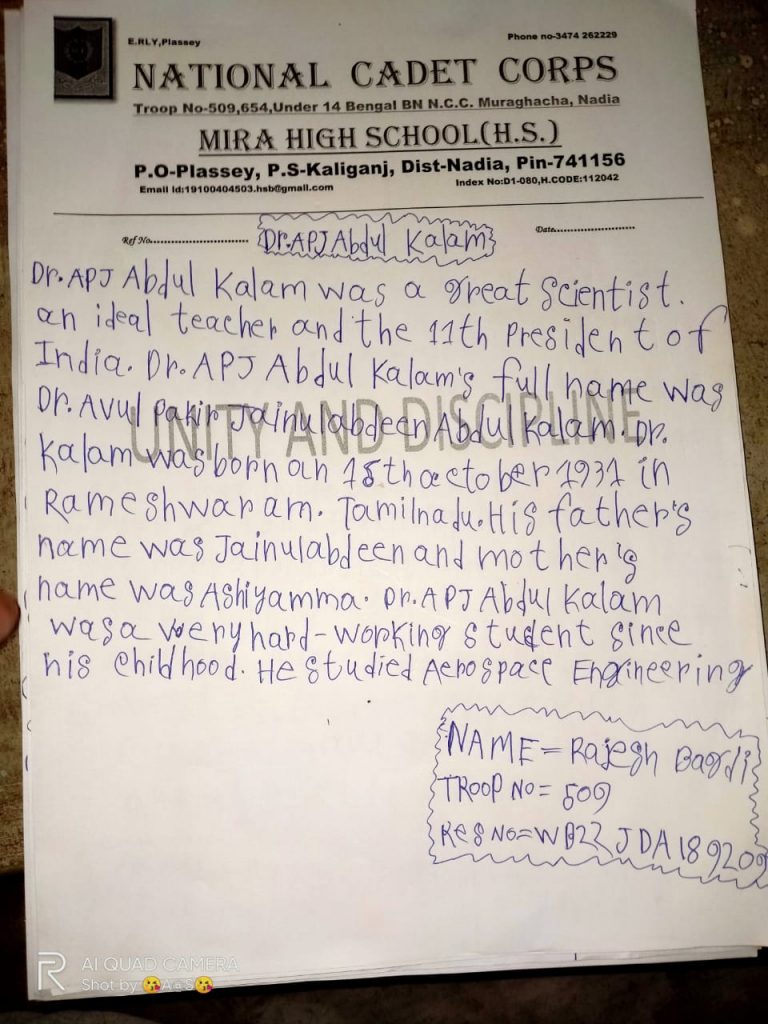 E.RLY,Plassey
Phone no-3474 262229
NATIONAL CADET CORPS
Troop No-509,654,Under 14 Bengal BN N.C.C. Muraghacha, Nadia
MIRA HIGH SCHOOL(H.S.)
P.O-Plassey, P.S-Kaliganj, Dist-Nadia, Pin-741156
Email Id:19100404503.hsb@gmail.com
Index No:D1-080,H.CODE:112042
Ref No.
Date
Dr.APJ Abdul Kalam
Dr. APJ Abdul Kalam was a great scientist.
an ideal teacher and the 11th President of
India. Dr. APJ Abdul Kalam's full name was
Dr. Avul Pakir Jainulabdeen Abdul Kalam. Dr.
UNITY AND DISCIPLINE
Kalam was born on 15th october 1931 in
Rameshwaram. Tamilnadu. His father's
name was Jainulabdeen and mother's
name was Ashiyamma. Dr. APJ Abdul Kalam
was a very hard-working student since
his childhood. He studied Aerospace Engineering
NAME = Rajesh Bagdi
TROOP NO = 509
Res No = WB22 JDA189209
R
AI QUAD CAMERA
Shot by 😘A❄S😘